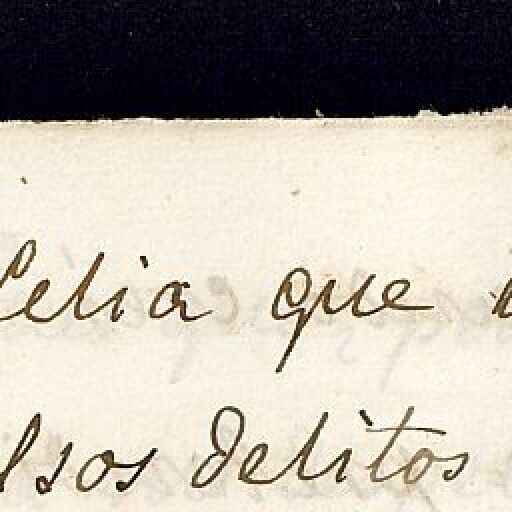 Celia que
lsos delitos